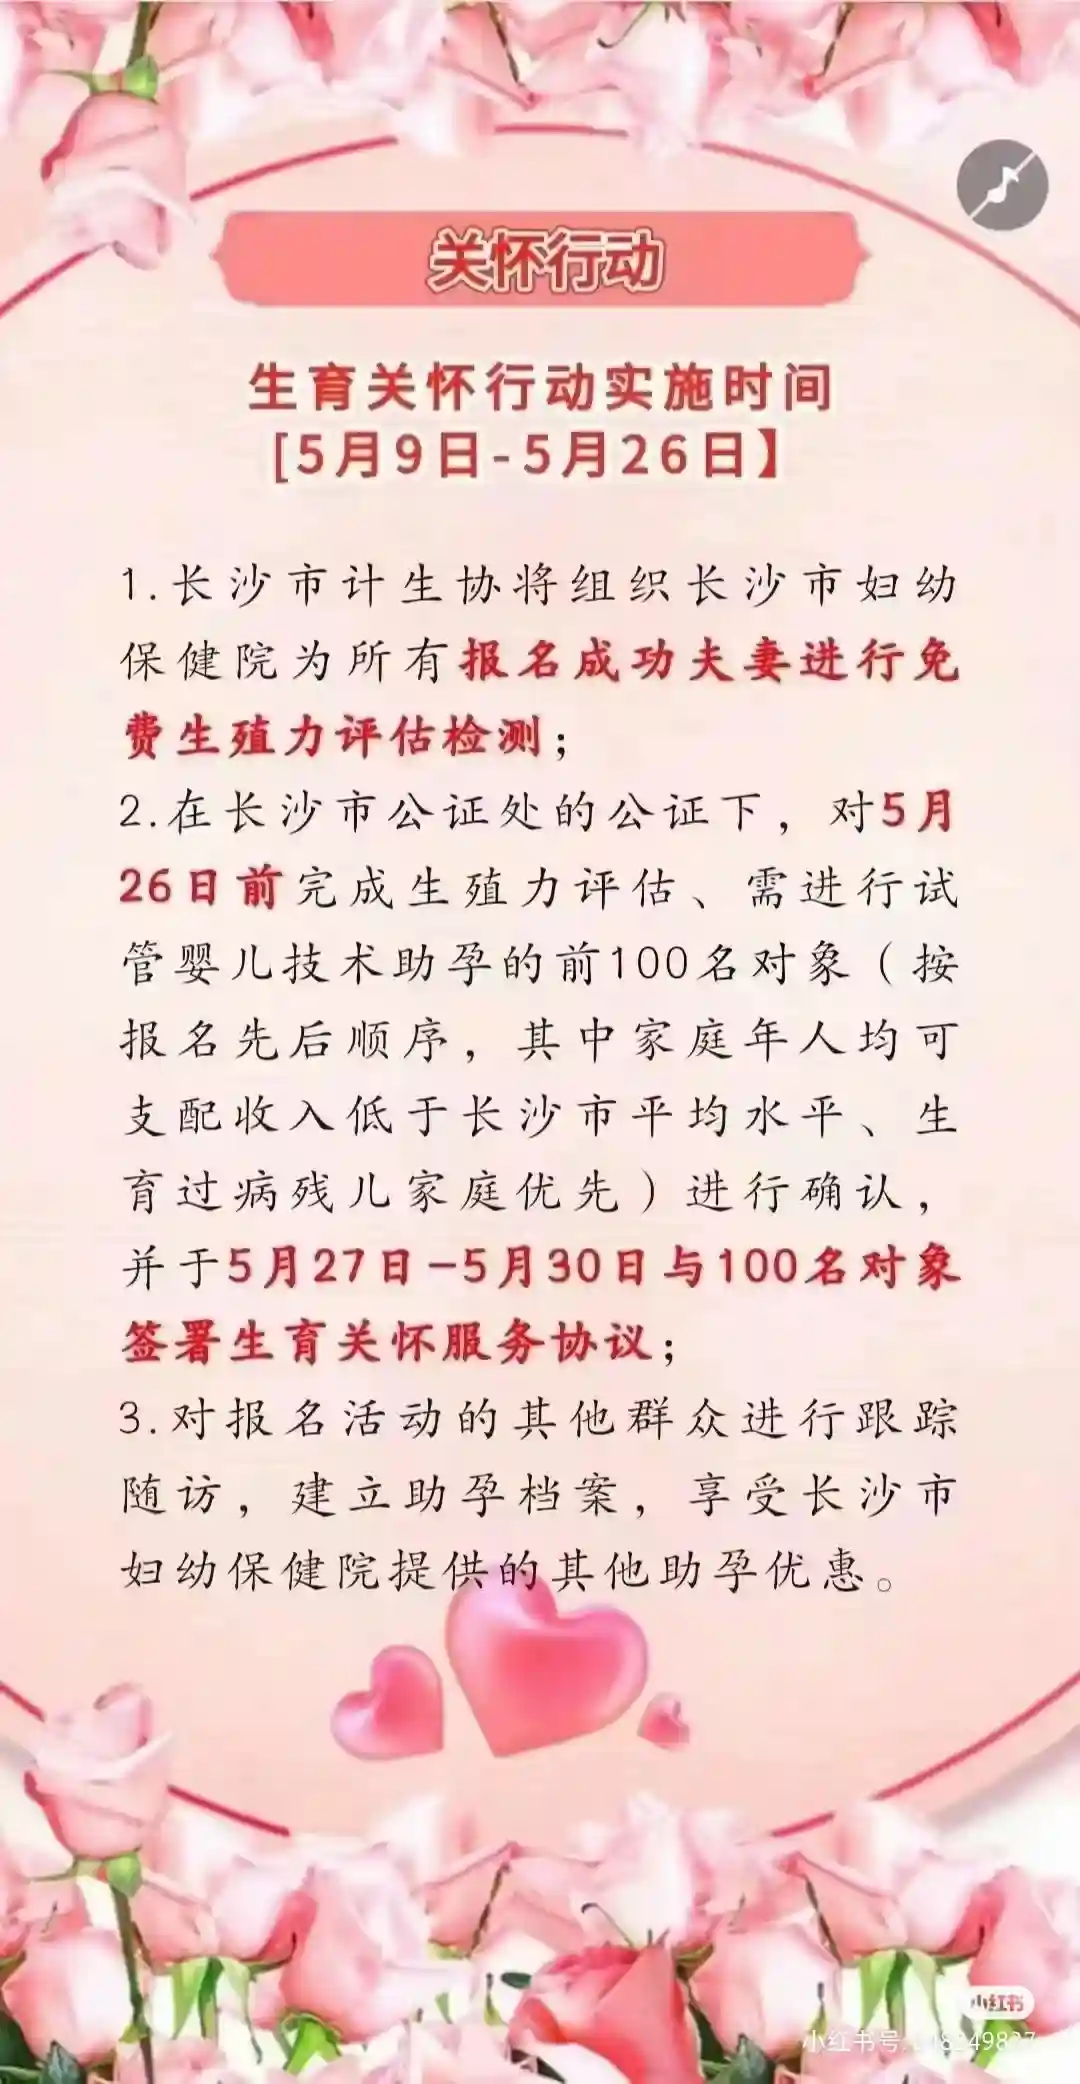 关怀行动
生育关怀行动实施时间
[5月9日-5月26日】
1.长沙市计生协将组织长沙市妇幼
保健院为所有报名成功夫妻进行免
费生殖力评估检测；
2.在长沙市公证处的公证下，对5月
26日前完成生殖力评估、需进行试
管婴儿技术助孕的前100名对象（按
报名先后顺序，其中家庭年人均可
支配收入低于长沙市平均水平、生
育过病残儿家庭优先）进行确认，
并于5月27日-5月30日与100名对象
签署生育关怀服务协议；
3.对报名活动的其他群众进行跟踪
随访，建立助孕档案，享受长沙市
妇幼保健院提供的其他助孕优惠。
小红书
小红书号: